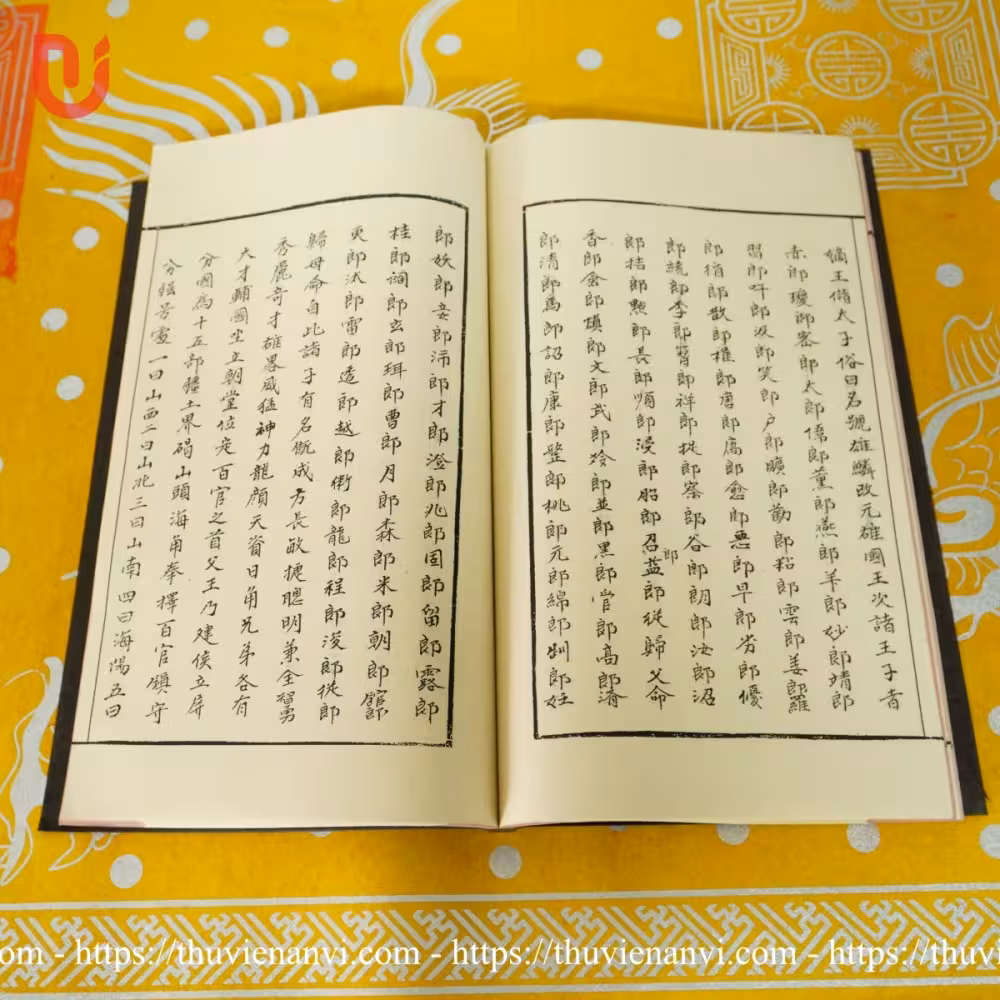 嫡王僃太子俗曰名號雄麟改元雄國王次諸王子者
赤郎瓊郎寒郎太郎儒郎薰郎燕郎羊郎紗郎靖郎
習郎吁郎汲郎笑郎戸郎曠郎勤郎粘郎雲郎姜郎羅
郎指郎散郎權郎唐郎腐郎愈郎惡郎早郎劣郎優
郎統郎李郎郎祥郎扙郎寀郎谷郎朗郎汝郎沼
郎桔郎點郎長郎順郎浸郎昭郎召郎益郎從歸父命
香郎會郎鎮郎文郎武郎玲郎並郎黑郎管郎高郎淯
郎清郎馬郎詔郎康郎整郎桃郎元郎綿郎釧郎妊
郎妖郎妾郎沛郎才郎澄郎兆郎固郎留郎露郎
桂郎詞郎玄郎珥郎曹郎月郎森郎米郎朝郎館郎
更郎汰郎雷郎透郎越郎衛郎龍郎程郎浚郎從郎
歸母命自此諸子有名既成方長敏捷聰明兼全智勇
秀麗奇才雄畧威猛神力龍顏天資日角兄弟各有
大才輔國坐立朝堂位定百官之首父王乃建侯立屏
分國為十五部疆土界碣山頭海角奉擇百官鎮守
分 一曰山西二曰山北三曰山南四曰海陽五曰
.com - https://thuvienanvi.com - https://thuvienanvi.com - https://thuvi